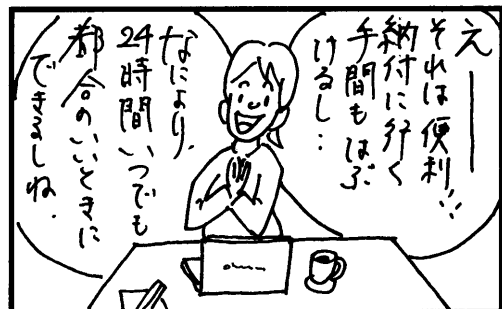 えーー
それは便利!!
納付に行く
手間もはぶ
けるし…
なにより、
24時間いつでも
都合のいいときに
できるしね.